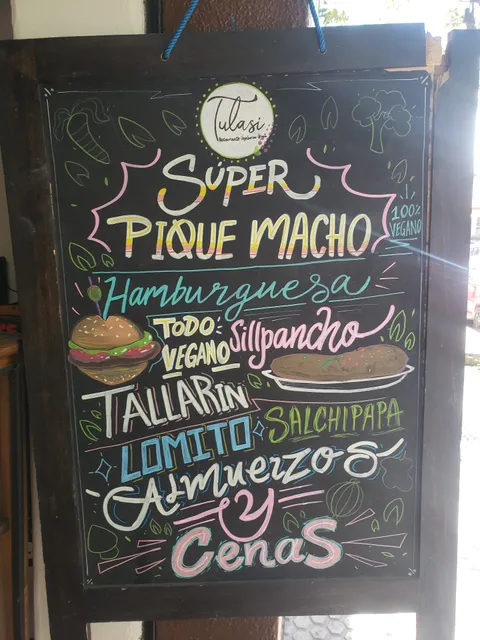 Tulasi
SUPER
PIQUE MACHO
100%
VEGANO
Hamburguesa
TODO
VEGANO
Sillpancho
TALLARIN
LOMITO
SALCHIPAPA
Almuerzos
Y
CenaS